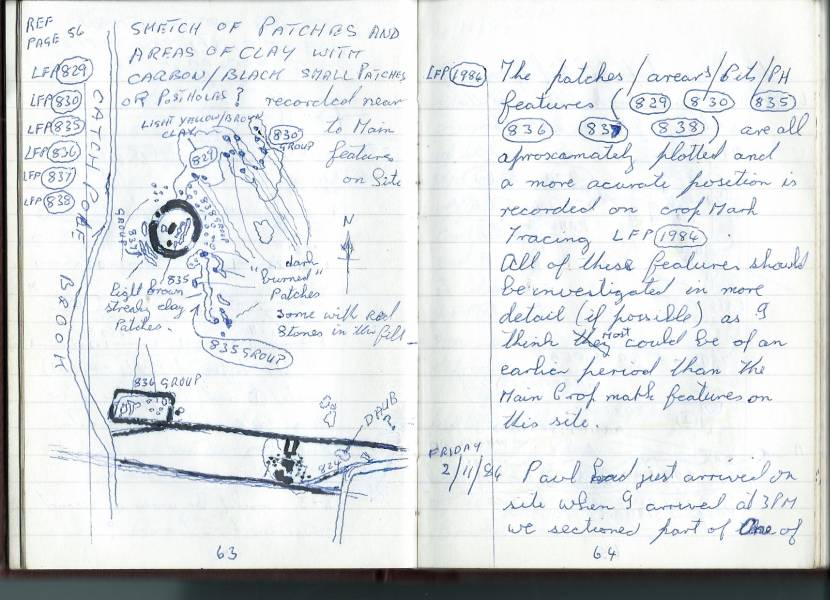 REF
PAGE 56
LFP 829
LFP 830
LFP 835
LFP 836
LFP 837
LFP 838
SKETCH OF PATCHES AND
AREAS OF CLAY WITH
CARBON/BLACK SMALL PATCHES
OR POSTHOLES? recorded near
to Main
features
on Site
LIGHT YELLOW/BROWN
CLAY
829
830
GROUP
838 GROUP
837
GROUP
N
CATCH POLE BROOK
835
dark
"burned"
Patches
some with red
stones in the fill
light brown
streaky clay
Patches.
835 GROUP
836 GROUP
DAUB
?
829
63
LFP 1984 The patches/areas/Pits/PH
features (829 830 835
836 837 838) are all
aproxamately plotted and
a more acurate position is
recorded on crop Mark
Tracing LFP 1984.
All of these features should
be investigated in more
detail (if possible) as I
think they Most could be of an
earlier period than the
Main Crop mark features on
this site.
FRIDAY
2/11/84 Paul had just arrived on
site when I arrived at 3PM
we sectioned part of One of
64